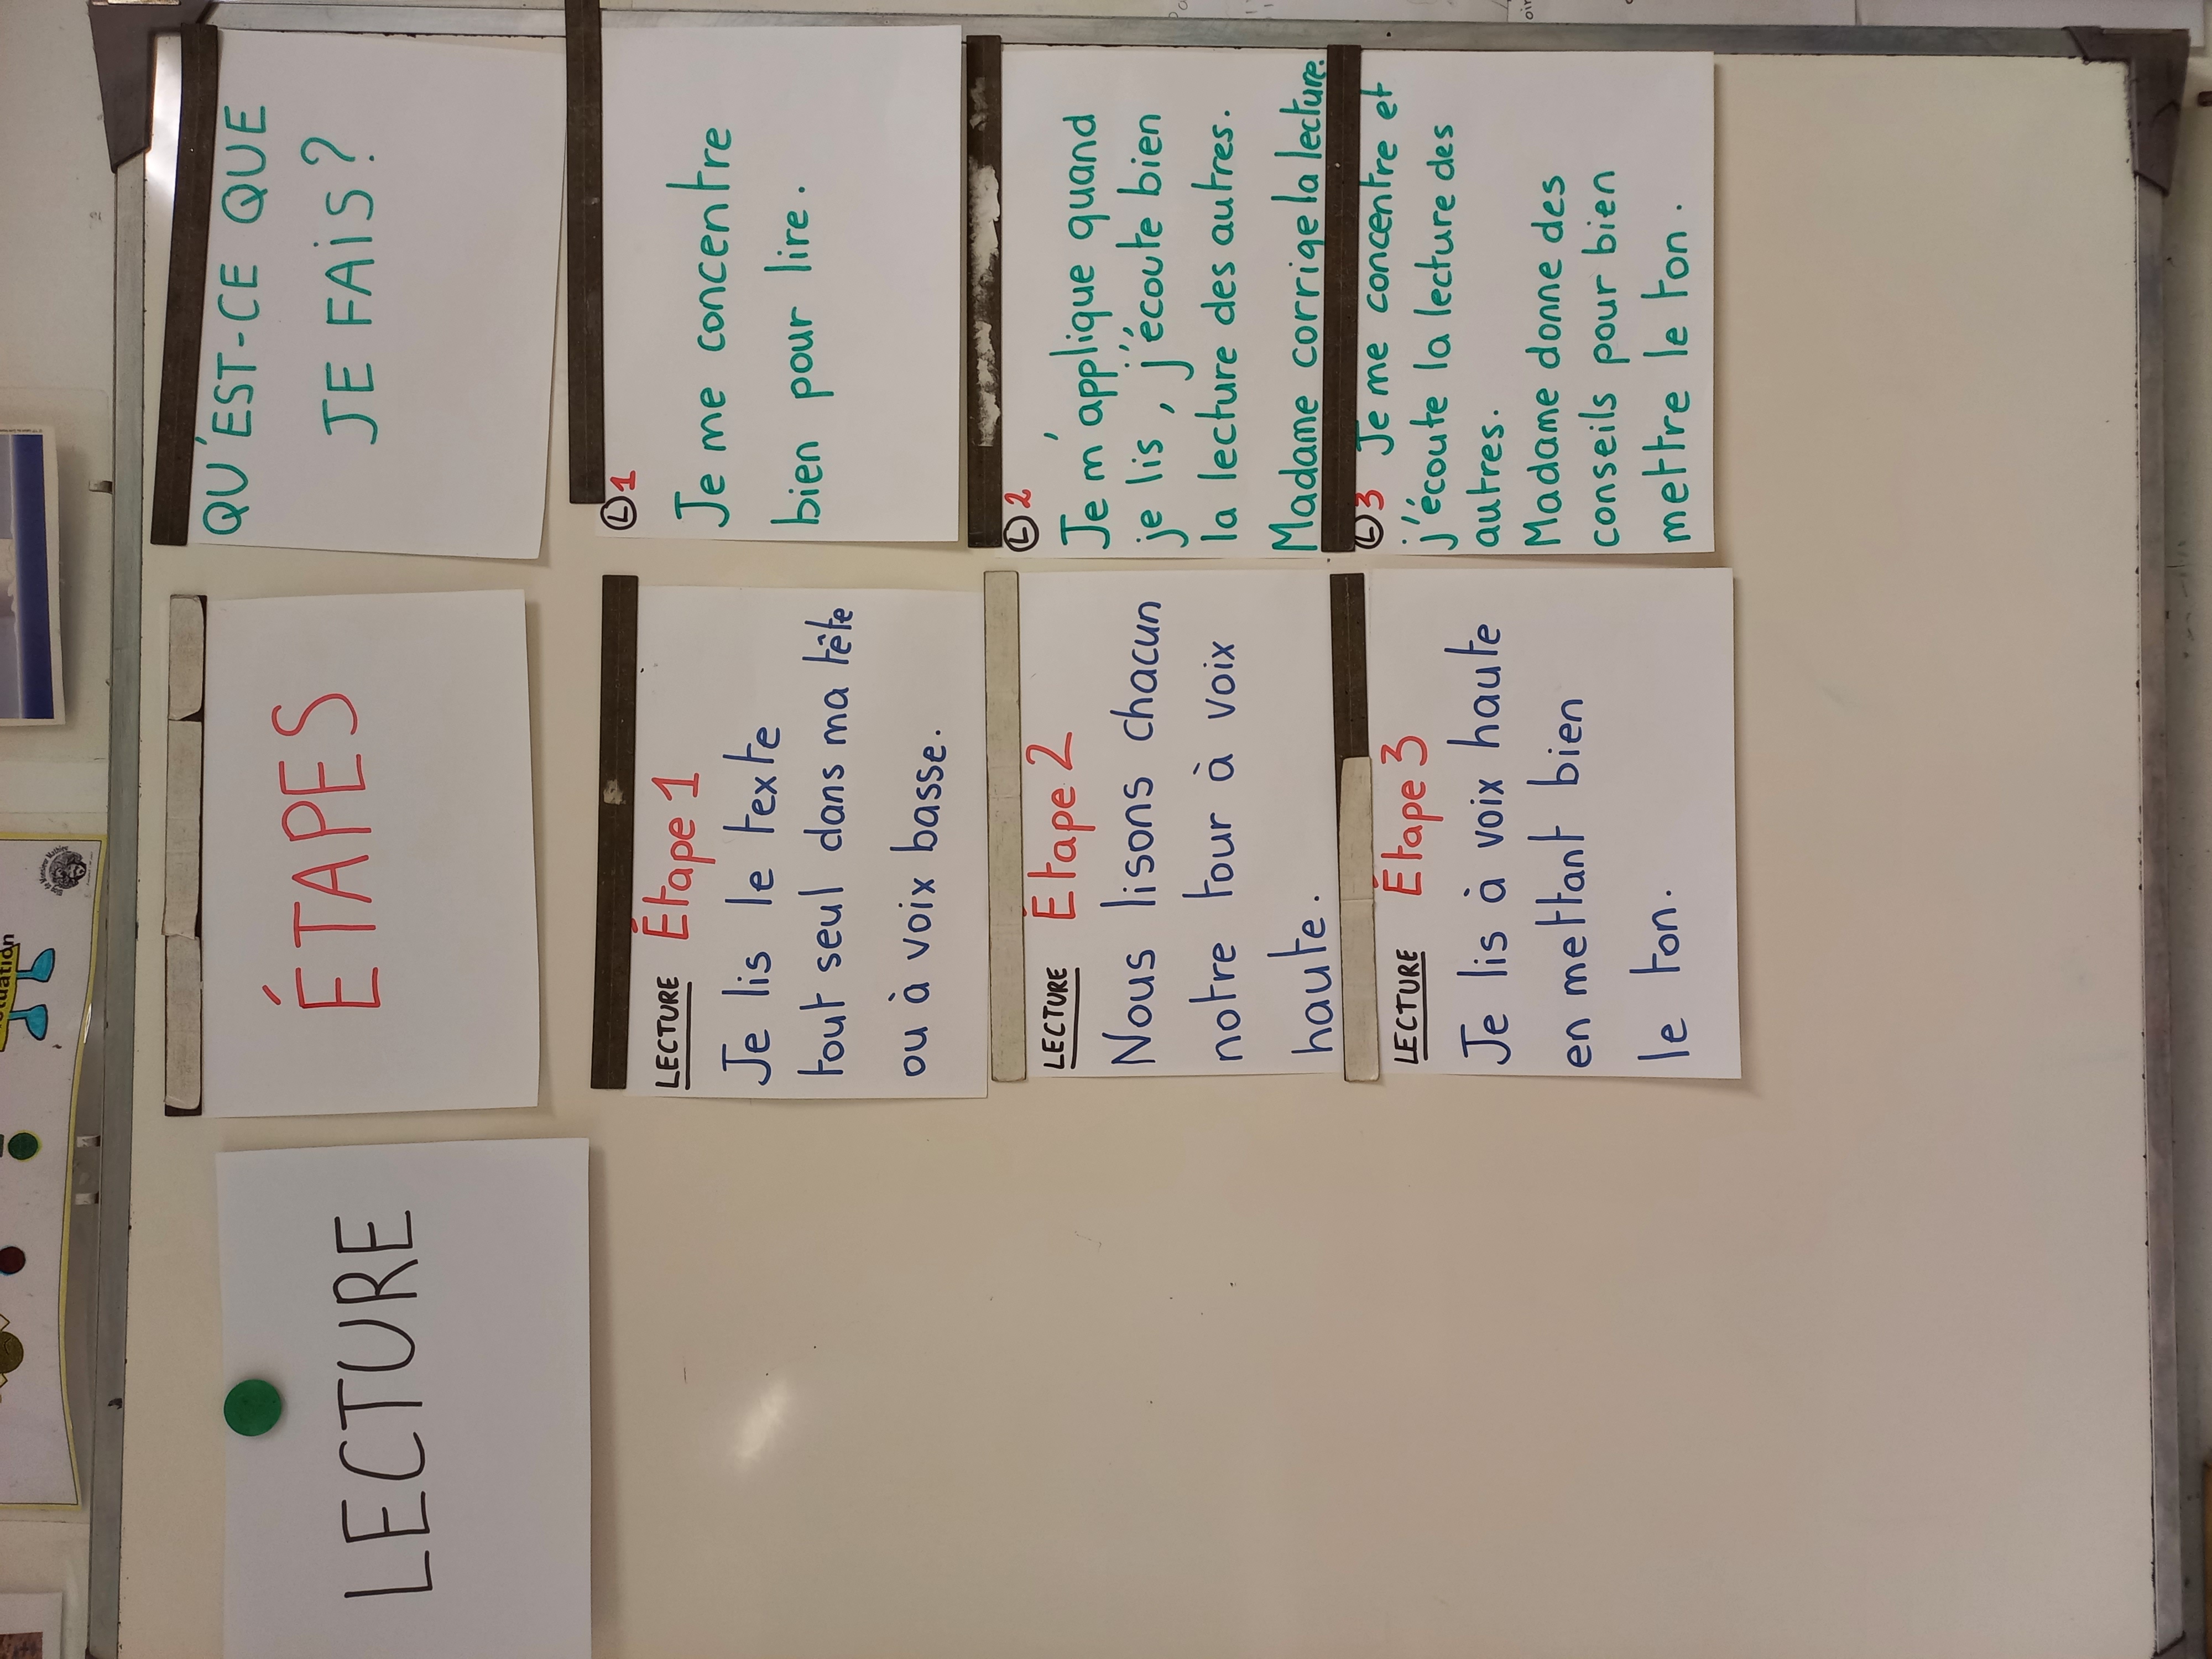 LECTURE
ÉTAPES
QU'EST-CE QUE
JE FAIS?
LECTURE Étape 1
Je lis le texte
tout seul dans ma tête
ou à voix basse.
L 1
Je me concentre
bien pour lire.
LECTURE Étape 2
Nous lisons chacun
notre tour à voix
haute.
L 2
Je m'applique quand
je lis, j'écoute bien
la lecture des autres.
Madame corrige la lecture.
LECTURE Étape 3
Je lis à voix haute
en mettant bien
le ton.
L 3 Je me concentre et
j'écoute la lecture des
autres.
Madame donne des
conseils pour bien
mettre le ton.